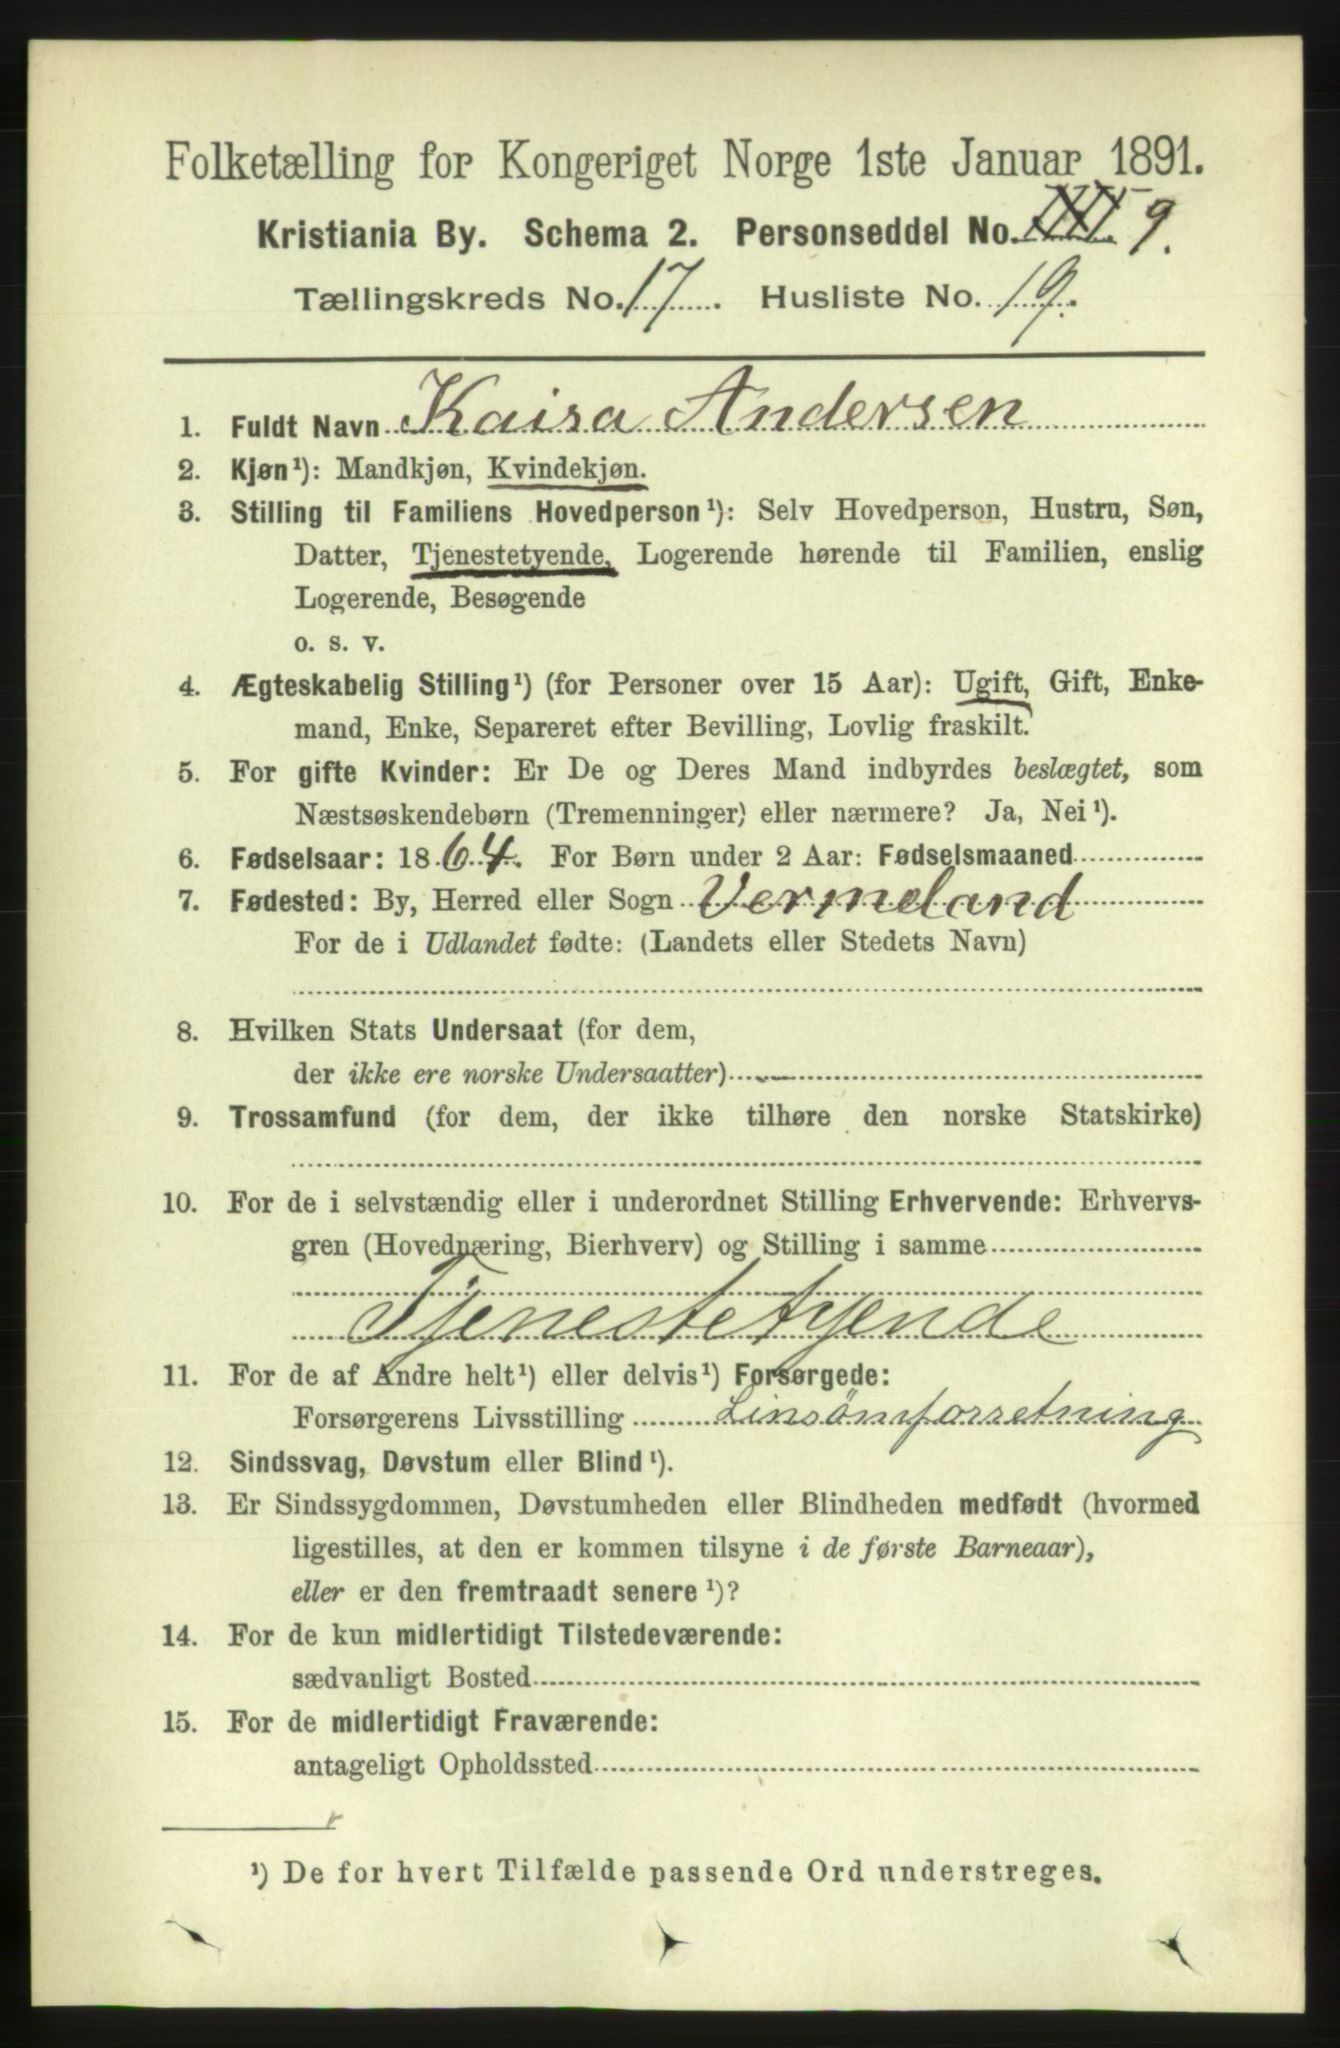 Folketælling for Kongeriget Norge 1ste Januar 1891.
Kristiania By. Schema 2. Personseddel No. 9.
Tællingskreds No. 17. Husliste No. 19.
1. Fuldt Navn Kaisa Andersen
2. Kjøn¹): Mandkjøn, Kvindekjøn.
3. Stilling til Familiens Hovedperson¹): Selv Hovedperson, Hustru, Søn,
Datter, Tjenestetyende, Logerende hørende til Familien, enslig
Logerende, Besøgende
o. s. v.
4. Ægteskabelig Stilling¹) (for Personer over 15 Aar): Ugift, Gift, Enke-
mand, Enke, Separeret efter Bevilling, Lovlig fraskilt.
5. For gifte Kvinder: Er De og Deres Mand indbyrdes beslægtet, som
Næstsøskendebørn (Tremenninger) eller nærmere? Ja, Nei¹).
6. Fødselsaar: 1864. For Børn under 2 Aar: Fødselsmaaned
7. Fødested: By, Herred eller Sogn Vermeland
For de i Udlandet fødte: (Landets eller Stedets Navn)
8. Hvilken Stats Undersaat (for dem,
der ikke ere norske Undersaatter)
9. Trossamfund (for dem, der ikke tilhøre den norske Statskirke)
10. For de i selvstændig eller i underordnet Stilling Erhvervende: Erhvervs-
gren (Hovednæring, Bierhverv) og Stilling i samme
Tjenestetyende
11. For de af Andre helt¹) eller delvis¹) Forsørgede:
Forsørgerens Livsstilling Linsömforretning
12. Sindssvag, Døvstum eller Blind¹).
13. Er Sindssygdommen, Døvstumheden eller Blindheden medfødt (hvormed
ligestilles, at den er kommen tilsyne i de første Barneaar),
eller er den fremtraadt senere¹)?
14. For de kun midlertidigt Tilstedeværende:
sædvanligt Bosted
15. For de midlertidigt Fraværende:
antageligt Opholdssted
¹) De for hvert Tilfælde passende Ord understreges.